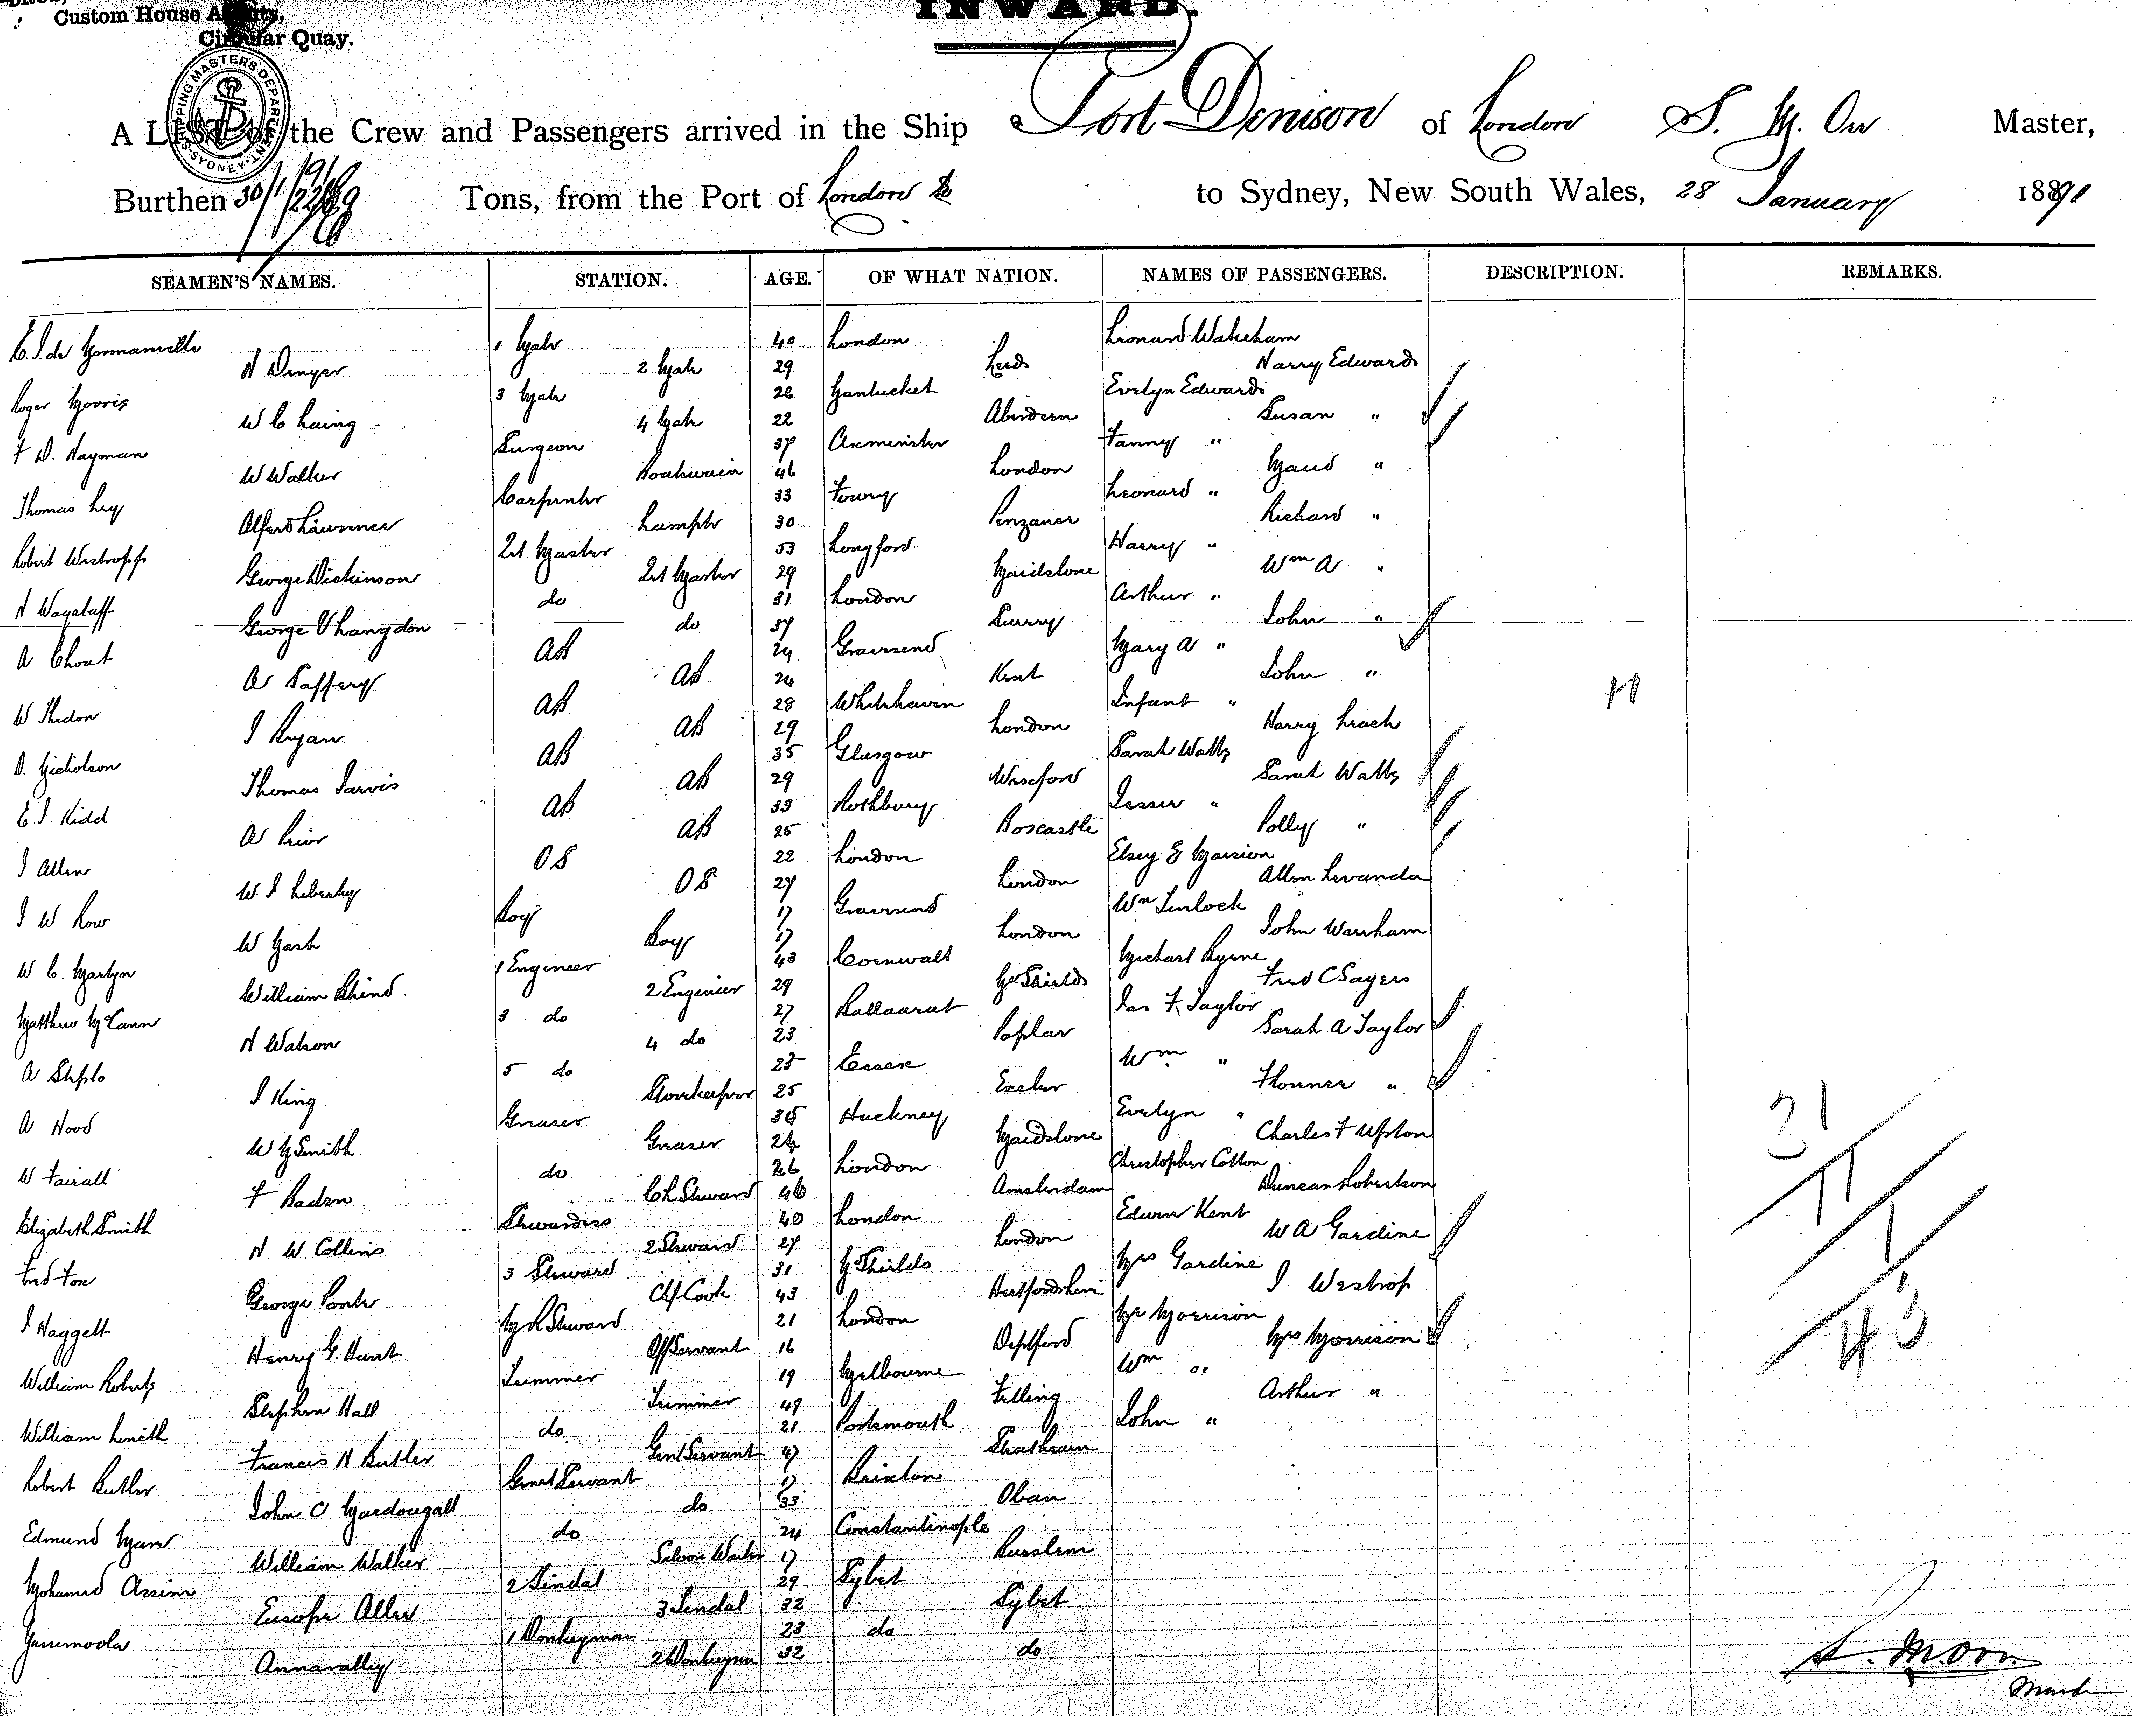 Custom House Agents,
Circular Quay.
INWARD.
SHIPPING MASTERS DEPARTMENT SYDNEY
A LIST of the Crew and Passengers arrived in the Ship Port Denison of London S. M. Orr Master,
Burthen Tons, from the Port of London to Sydney, New South Wales, 28 January 1891
SEAMEN'S NAMES. STATION. AGE. OF WHAT NATION. NAMES OF PASSENGERS. DESCRIPTION. REMARKS.
1 Mate 40 London Leonard Wakeham
2 Mate 29 Leeds Harry Edwards
Roger Morris 3 Mate 26 Nantucket Evelyn Edwards
W C Laing 4 Mate 22 Aberdeen Susan "
F D. Hayman Surgeon 37 Axminster Fanny "
W Walker Boatswain 46 London Maud "
Thomas Ley Carpenter 33 Fowey Leonard "
Alfred Lawrence Lamptr 30 Penzance Richard "
Robert Westropp Qt Master 53 Longford Harry "
George Dickinson Qt Master 29 Maidstone Wm A "
H Wagstaff do 31 London Arthur "
George V Langdon do 37 Surrey John "
A Choat AB 24 Gravesend Mary A "
A Saffery AB 24 Kent John "
W AB 28 Whitehaven Infant "
J Ryan AB 29 London Harry Leach
D. Nicholson AB 35 Glasgow Sarah Watts
Thomas Jarvis AB 29 Wexford Sarah Watts
E. J. Kidd AB 33 Rothbury Jessie "
A Prior AB 25 Boscastle Polly "
J Allen OS 22 London
W J Liberty OS 27 London
J W Low Boy 17 Gravesend Wm Turlock
W Mash Boy 17 London John Warsham
W C. Martyn 1 Engineer 43 Cornwall Michael Byrne
William Rhind. 2 Engineer 29 N Shields Fred C Sayers
Matthew McCann 3 do 27 Ballaarat Jas F Taylor
H Watson 4 do 23 Poplar Sarah A Taylor
A 5 do 23 Essex Wm "
J King Storekeeper 25 Exeter Florence "
A Hood Greaser 36 Hackney Evelyn "
W M Smith Greaser 24 Maidstone Charles F Upton
W Fairall do 26 London Christopher Cotton
F Baden Ch Steward 46 Amsterdam Duncan Robertson
Elizabeth Smith Stewardess 40 London Edwin Kent
H W Collins 2 Steward 27 London W A Gardine
Fred Fox 3 Steward 31 N Shields Mrs Gardine
George Ch Cook 43 Hertfordshire J Westrop
J Haggett Steward 21 London Mr Morrison
Henry G. Hunt Off Servant 16 Deptford Mrs Morrison
William Roberts Trimmer 19 Melbourne Wm "
Stephen Hall Trimmer 49 Felling Arthur "
William do 21 Portsmouth John "
Francis H Butler Genl Servant 47
Robert Butler Genl Servant 17 Brixton
John C Macdougall do 33 Oban
Edmund do 24 Constantinople
William Walker Saloon Waiter 17 Burslem
Mohamed Assim 2 Tindal 29 Sylet
Allee 3 Tindal 32 Sylet
1 Donkeyman 23 do
Annavally 2 Donkeyman 32 do
31
11
1
43